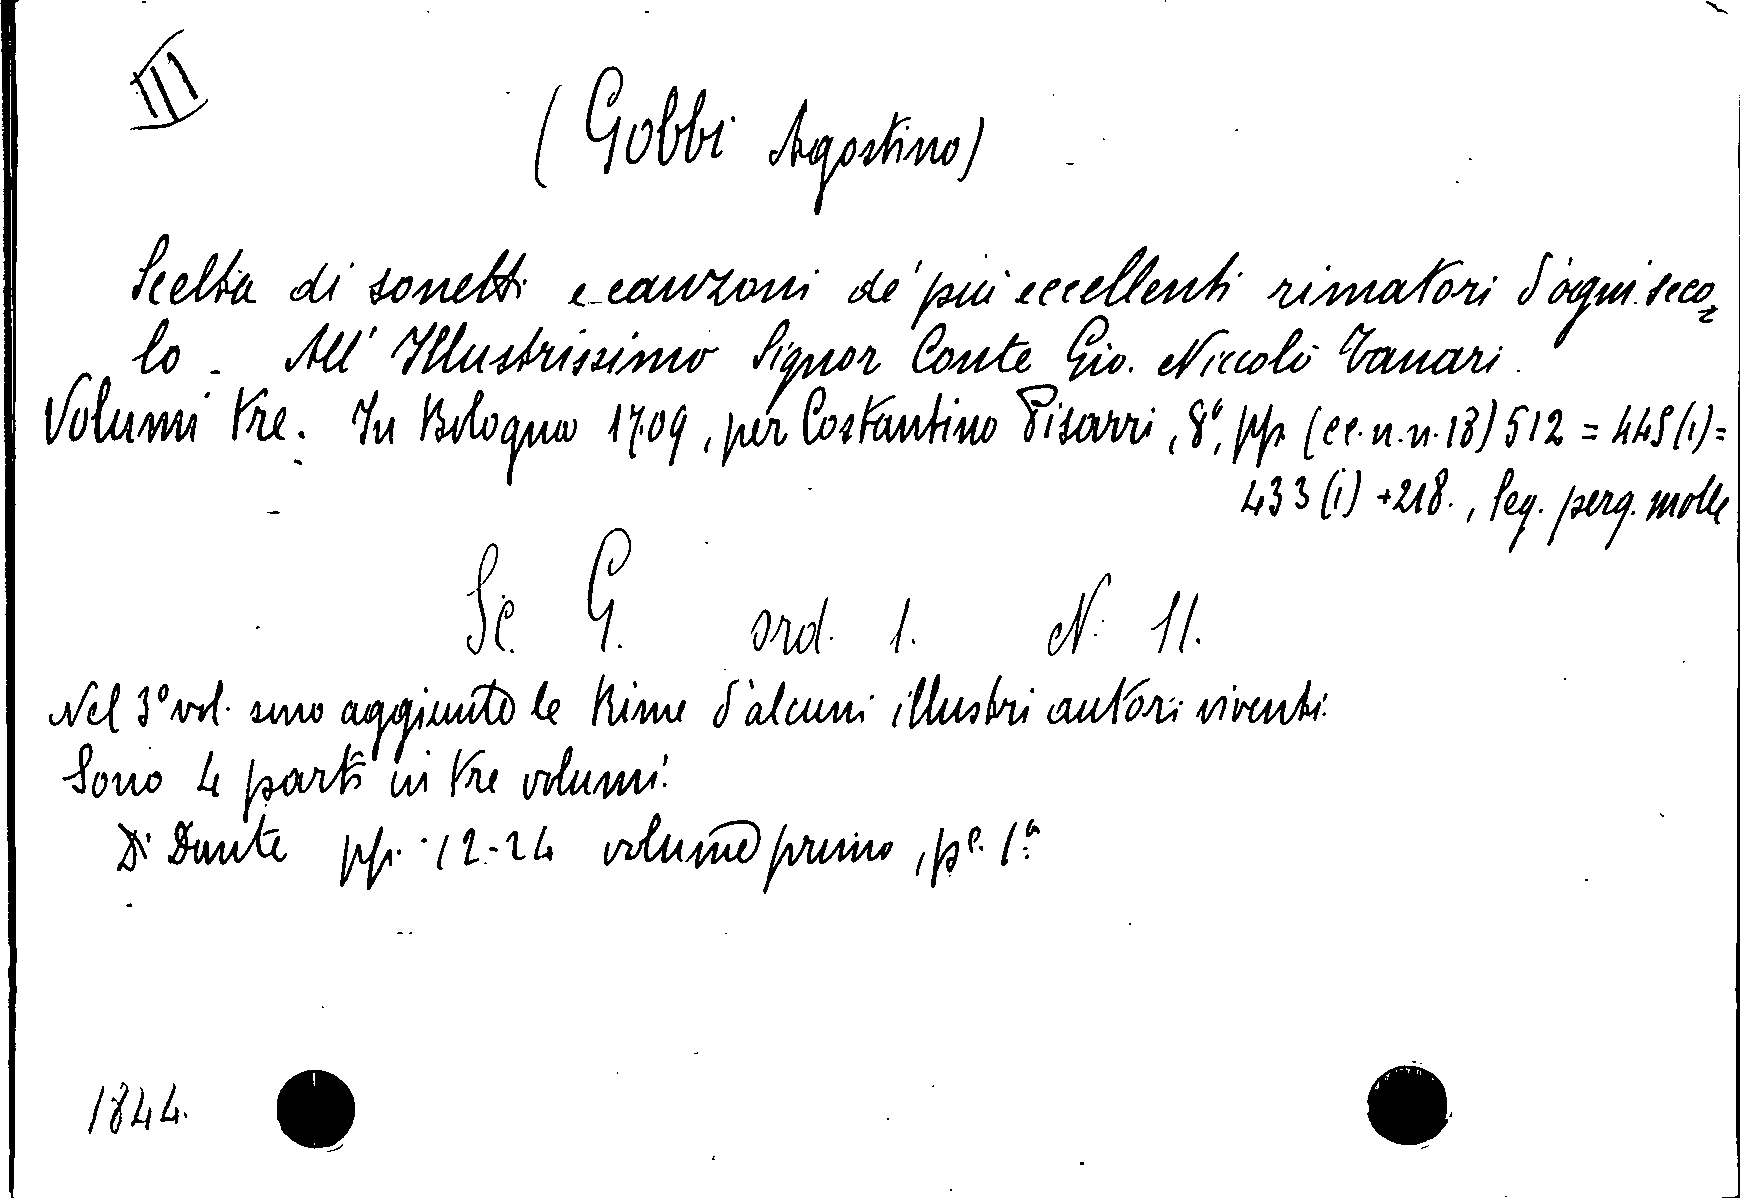 III
(Gobbi Agostino)
Scelta di sonetti e canzoni de' più eccellenti rimatori d'ogni seco-
lo. All' Illustrissimo Signor Conte Gio. Niccolò Tanari.
Volumi tre. In Bologna 1709, per Costantino Pisarri, 8°, pp. (cc. n. n. 18) 512 = 445 (1) =
433 (1) + 218., leg. perg. molle
Sc. G. ord. 1. N. 11.
Nel 3° vol. sono aggiunte le Rime d'alcuni illustri autori viventi.
Sono 4 parti in tre volumi.
Di Dante pp. 12-24 volume primo, pe. 1ª
1844.